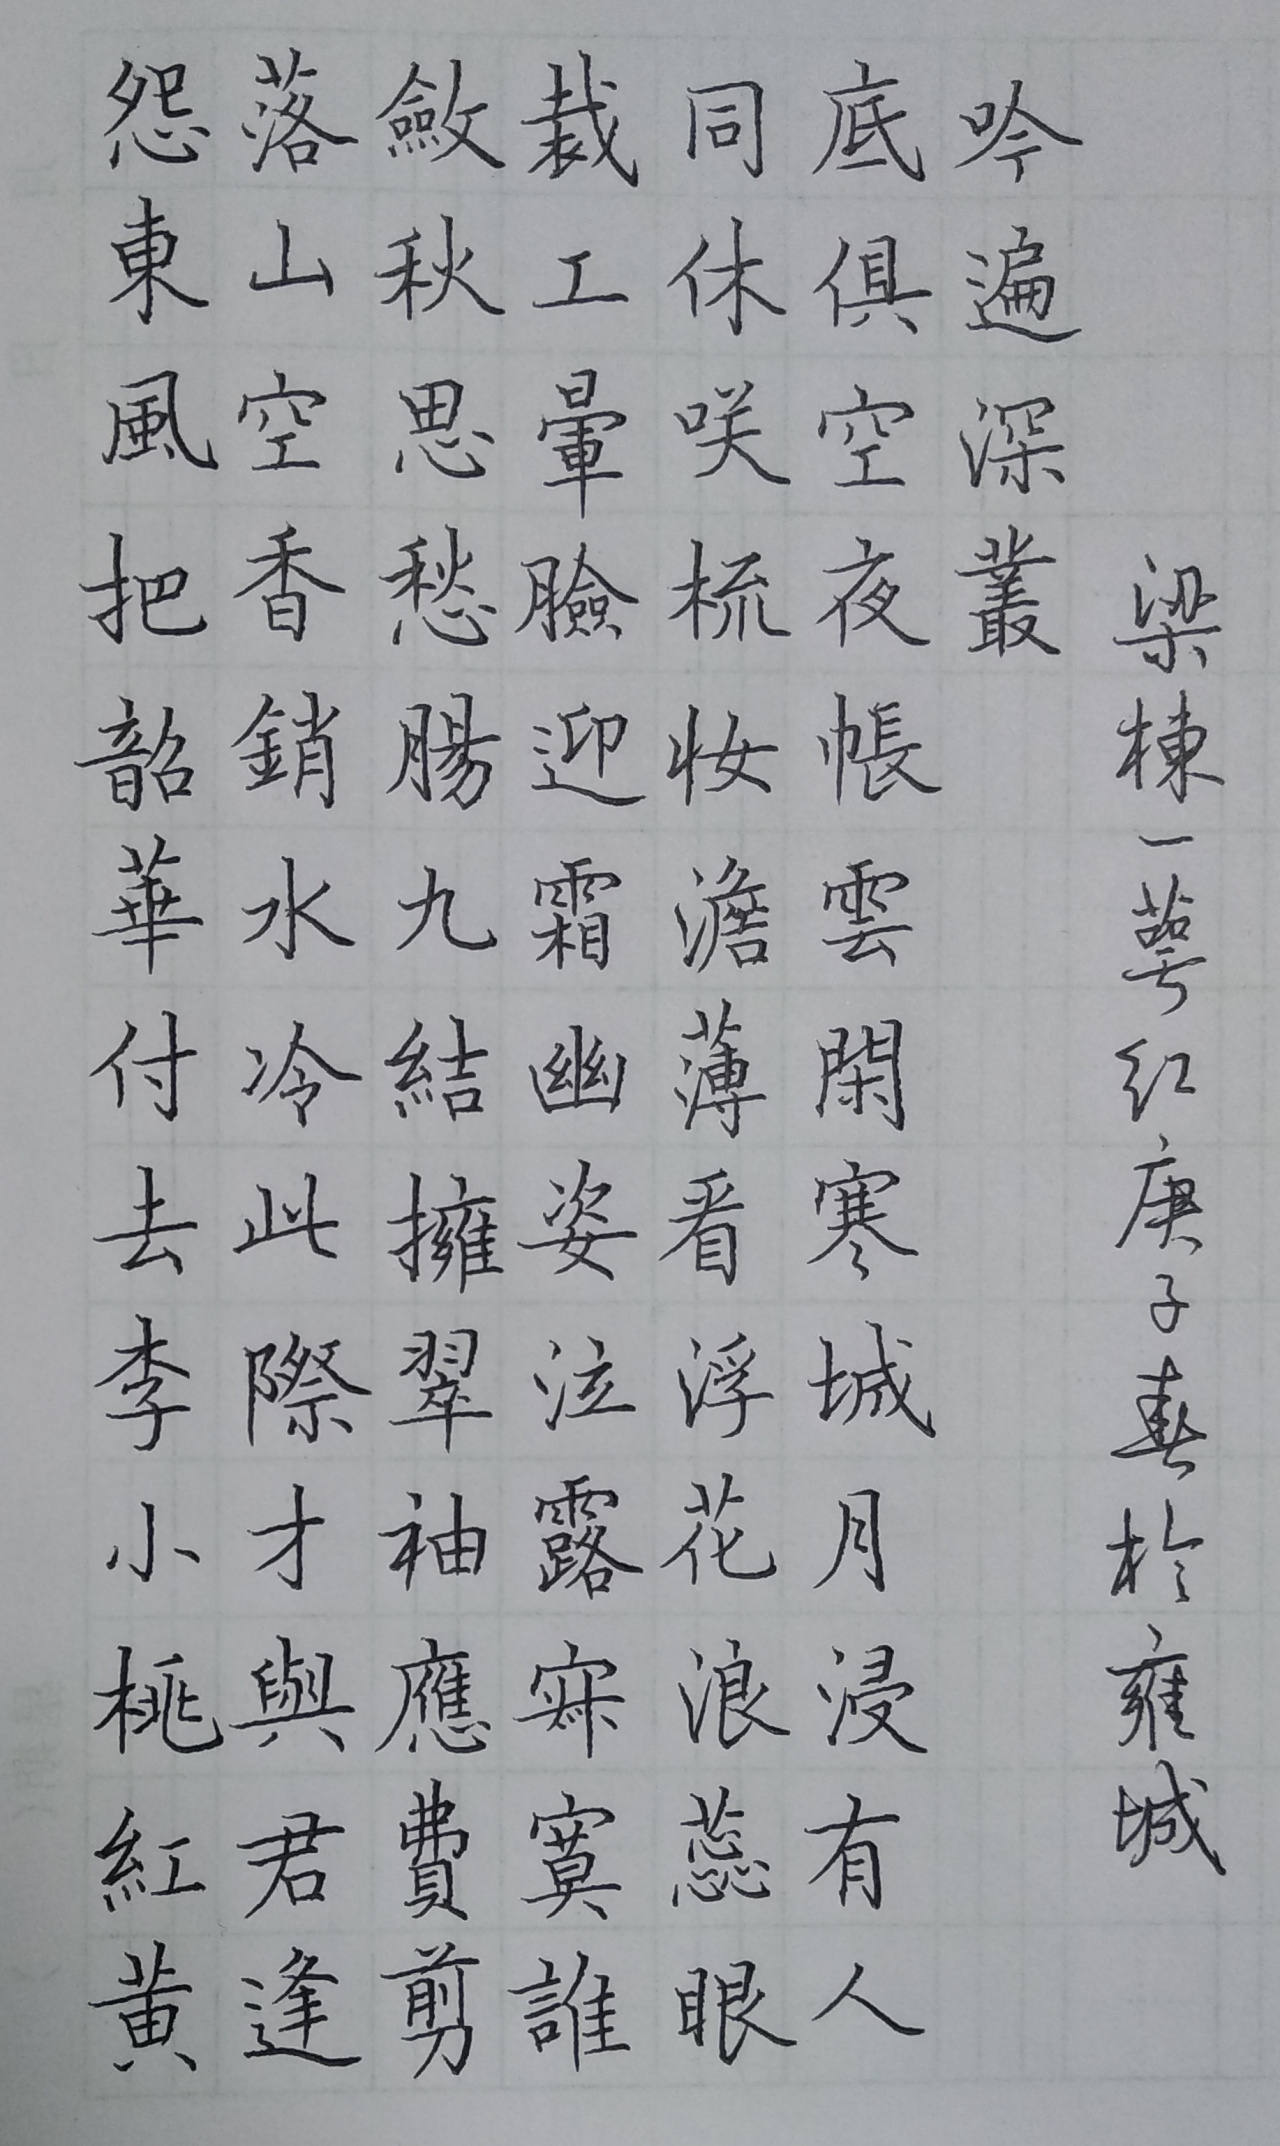 怨東風把韶華付去李小桃紅黃
落山空香銷水冷此際才與君逢
斂秋思愁腸九結擁翠袖應費剪
裁工暈臉迎霜幽姿泣露寂寞誰
同休咲梳妝澹薄看浮花浪蕊眼
底俱空夜帳雲閑寒城月浸有人
吟遍深叢
梁棟一萼红庚子春於雍城